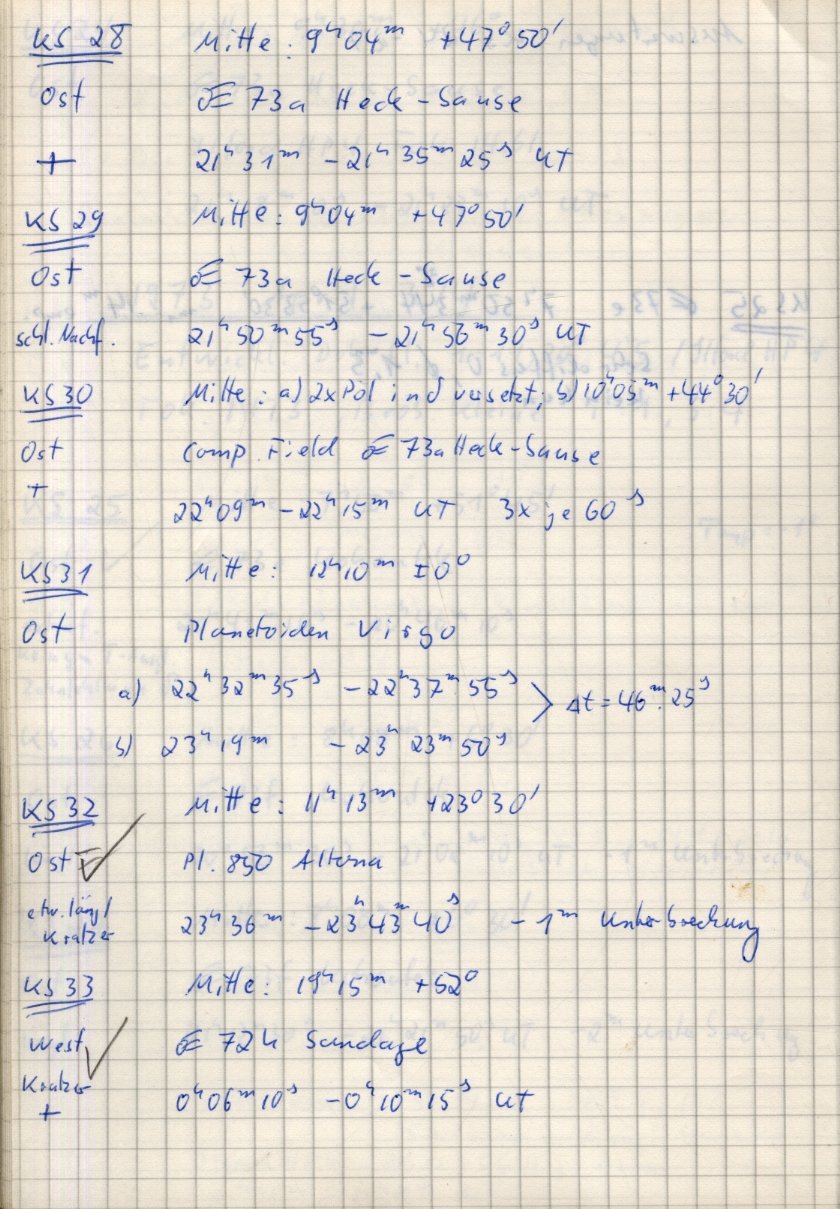 KS 28 Mitte: 9ʰ04ᵐ +47° 50'
Ost ☄ 73a Heck-Sause
+ 21ʰ31ᵐ – 21ʰ 35ᵐ 25ˢ UT
KS 29 Mitte: 9ʰ04ᵐ +47° 50'
Ost ☄ 73a Heck-Sause
schl. Nachf. 21ʰ 50ᵐ 55ˢ – 21ʰ 56ᵐ 30ˢ UT
KS 30 Mitte: a) 2x Pol in δ versetzt; b) 10ʰ05ᵐ +44° 30'
Ost Comp. Field ☄ 73a Heck-Sause
+ 22ʰ09ᵐ – 22ʰ15ᵐ UT 3x je 60ˢ
KS 31 Mitte: 12ʰ10ᵐ ±0°
Ost Planetoiden Virgo
a) 22ʰ 32ᵐ 35ˢ – 22ʰ 37ᵐ 55ˢ > Δt = 46ᵐ. 25ˢ
b) 23ʰ 19ᵐ – 23ʰ 23ᵐ 50ˢ
KS 32 Mitte: 11ʰ 13ᵐ +23° 30'
Ost ✓ Pl. 850 Altona
etw. längl 23ʰ 36ᵐ – 23ʰ 43ᵐ 40ˢ – 1ᵐ Unterbrechung
Kratzer
KS 33 Mitte: 19ʰ 15ᵐ +52°
West ✓ ☄ 72h Sandage
Kratzer
+ 0ʰ 06ᵐ 10ˢ – 0ʰ 10ᵐ 15ˢ UT